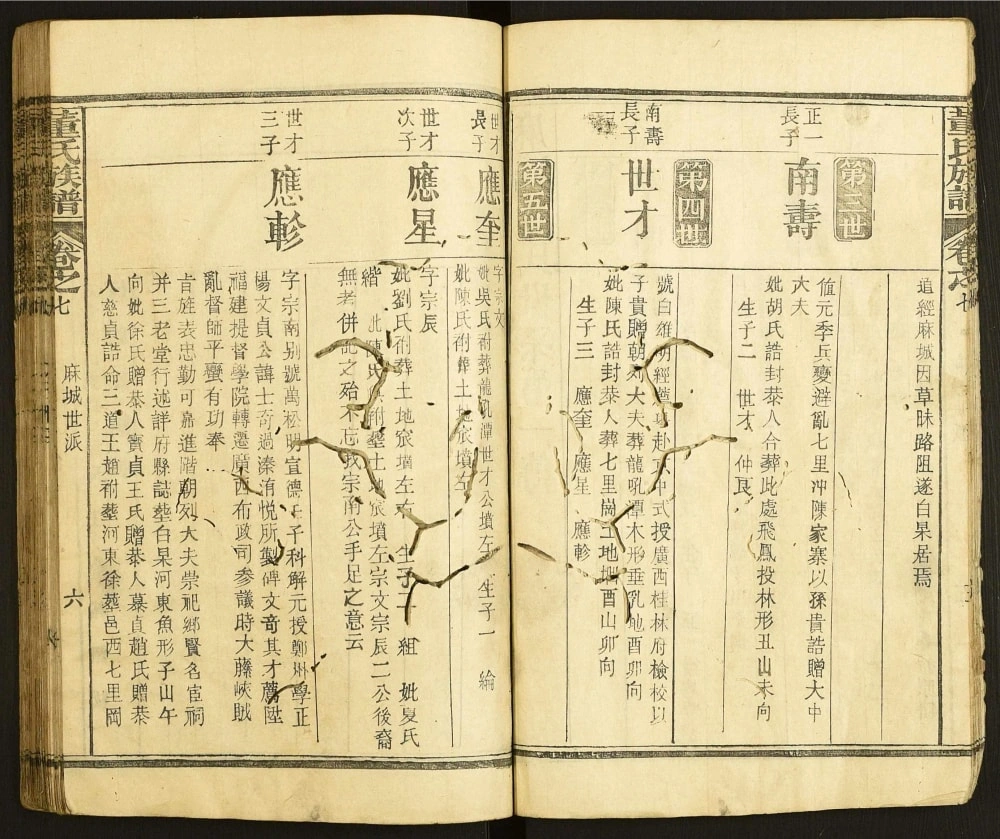 董氏族譜
卷之七
道經麻城因草昧路阻遂白杲居焉
第三世
正一
長子
南壽
值元季兵變避亂七里冲陳家寨以孫貴誥贈大中
大夫
妣胡氏誥封恭人合葬此處飛鳳投林形丑山未向
生子二 世才 仲良
第四世
南壽
長子
世才
號白雉明經
赴京中式授廣西桂林府檢校以
子貴贈朝列大夫葬龍吼潭木形垂乳地酉卯向
妣陳氏誥封恭人葬七里崗土地
酉山卯向
生子三 應奎 應星 應軫
第五世
世才
長子
應奎
字宗文
妣吳氏祔葬龍吼潭世才公墳左 生子一 綸
妣陳氏祔葬土地
墳左
世才
次子
應星
字宗辰
妣劉氏祔葬土地
墳左
生子二 組 妣夏氏
緒
陳氏
祔塟土地
墳左宗文宗辰二公後裔
無考併記之殆不忘我宗南公手足之意云
世才
三子
應軫
字宗南别號萬松明宣德
子科解元授鄭州學正
楊文貞公諱士奇過溱洧悅所製碑文奇其才薦陞
福建提督學院轉遷廣西布政司參議時大藤峽賊
亂督師平蠻有功奉
旨旌表忠勤可嘉進階朝列大夫崇祀鄉賢名宦祠
并三老堂行述詳府縣誌塟白杲河東魚形子山午
向妣徐氏贈恭人竇貞王氏贈恭人慕貞趙氏贈恭
人慈貞誥命三道王趙祔塟河東徐塟邑西七里岡
董氏族譜
卷之七
麻城世派
六